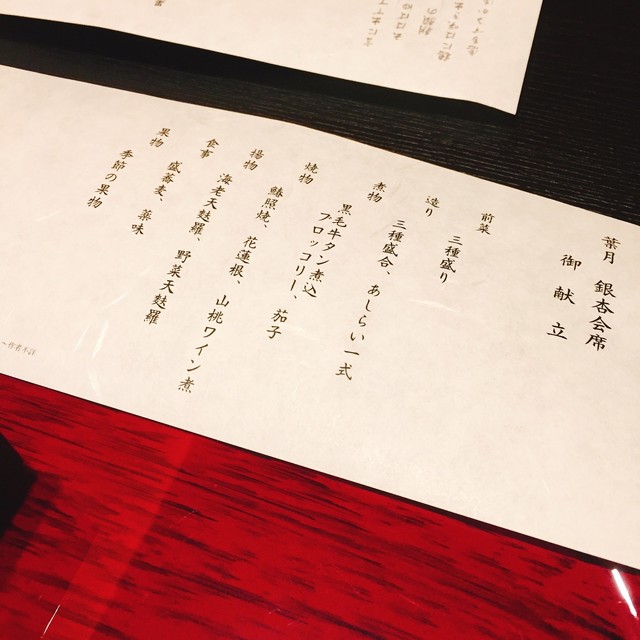 葉月 銀杏会席
御献立
前菜
三種盛り
造り
三種盛合、あしらい一式
煮物
黒毛牛タン煮込
ブロッコリー、茄子
焼物
鰆照焼、花蓮根、山桃ワイン煮
揚物
海老天麩羅、野菜天麩羅
食事
盛蕎麦、薬味
果物
季節の果物